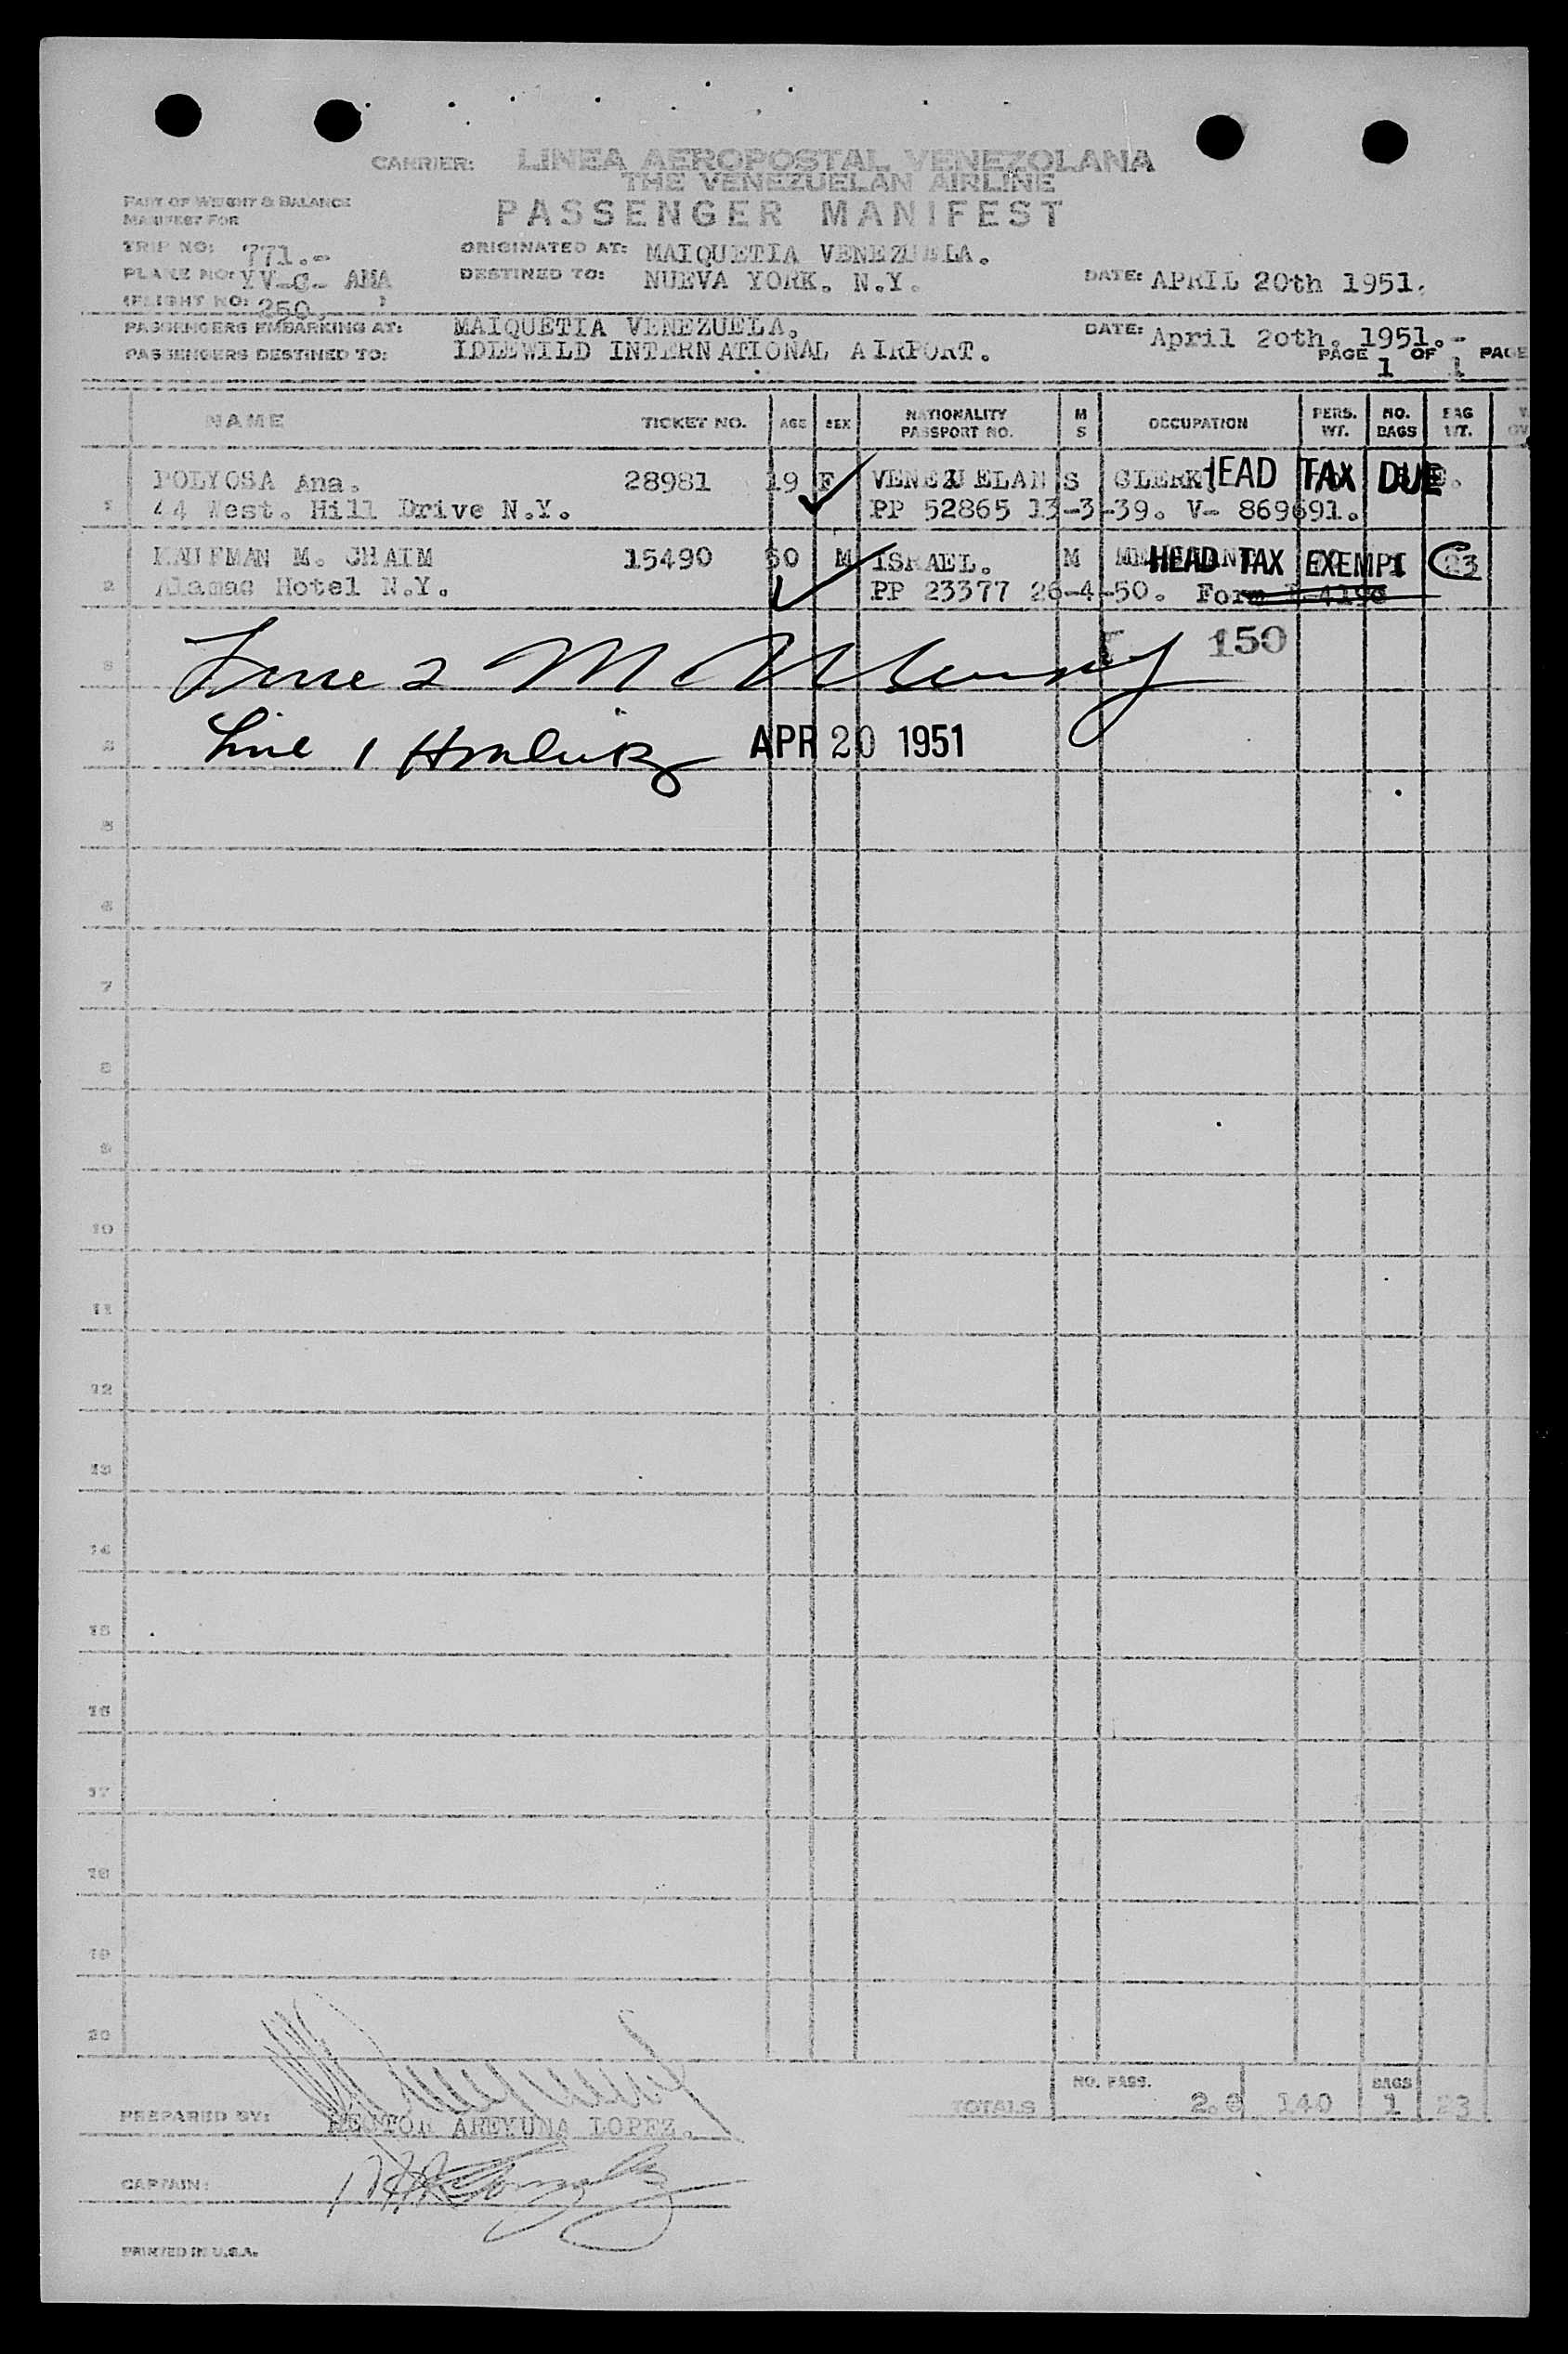 CARRIER: LINEA AEROPOSTAL VENEZOLANA
THE VENEZUELAN AIRLINE
PART OF WEIGHT & BALANCE
MANIFEST FOR
PASSENGER MANIFEST
TRIP NO: 771.- ORIGINATED AT: MAIQUETIA VENEZUELA.
PLANE NO: YV-C- AMA DESTINED TO: NUEVA YORK. N.Y. DATE: APRIL 20th 1951.
(FLIGHT NO: 250. )
PASSENGERS EMBARKING AT: MAIQUETIA VENEZUELA. DATE: April 20th. 1951.-
PASSENGERS DESTINED TO: IDLEWILD INTERNATIONAL AIRPORT. PAGE 1 OF 1 PAGE
NAME TICKET NO. AGE SEX NATIONALITY PASSPORT NO. M S OCCUPATION PERS. WT. NO. BAGS BAG WT.
1 POLYOSA Ana. 28981 19 F VENEZUELAN S CLERK. HEAD TAX DUE
44 West. Hill Drive N.Y. PP 52865 13-3-39. V- 869691.
2 KAUFMAN M. CHAIM 15490 50 M ISRAEL. M HEAD TAX EXEMPT 23
Alamac Hotel N.Y. PP 23377 26-4-50. Form
3 I 150
Line 2 M
Line 1 APR 20 1951
5
6
7
8
9
10
11
12
13
14
15
16
17
18
19
20
TOTALS NO. PASS. 2. 140 BAGS 1 23
PREPARED BY: LOPEZ.
CAPTAIN:
PRINTED IN U.S.A.